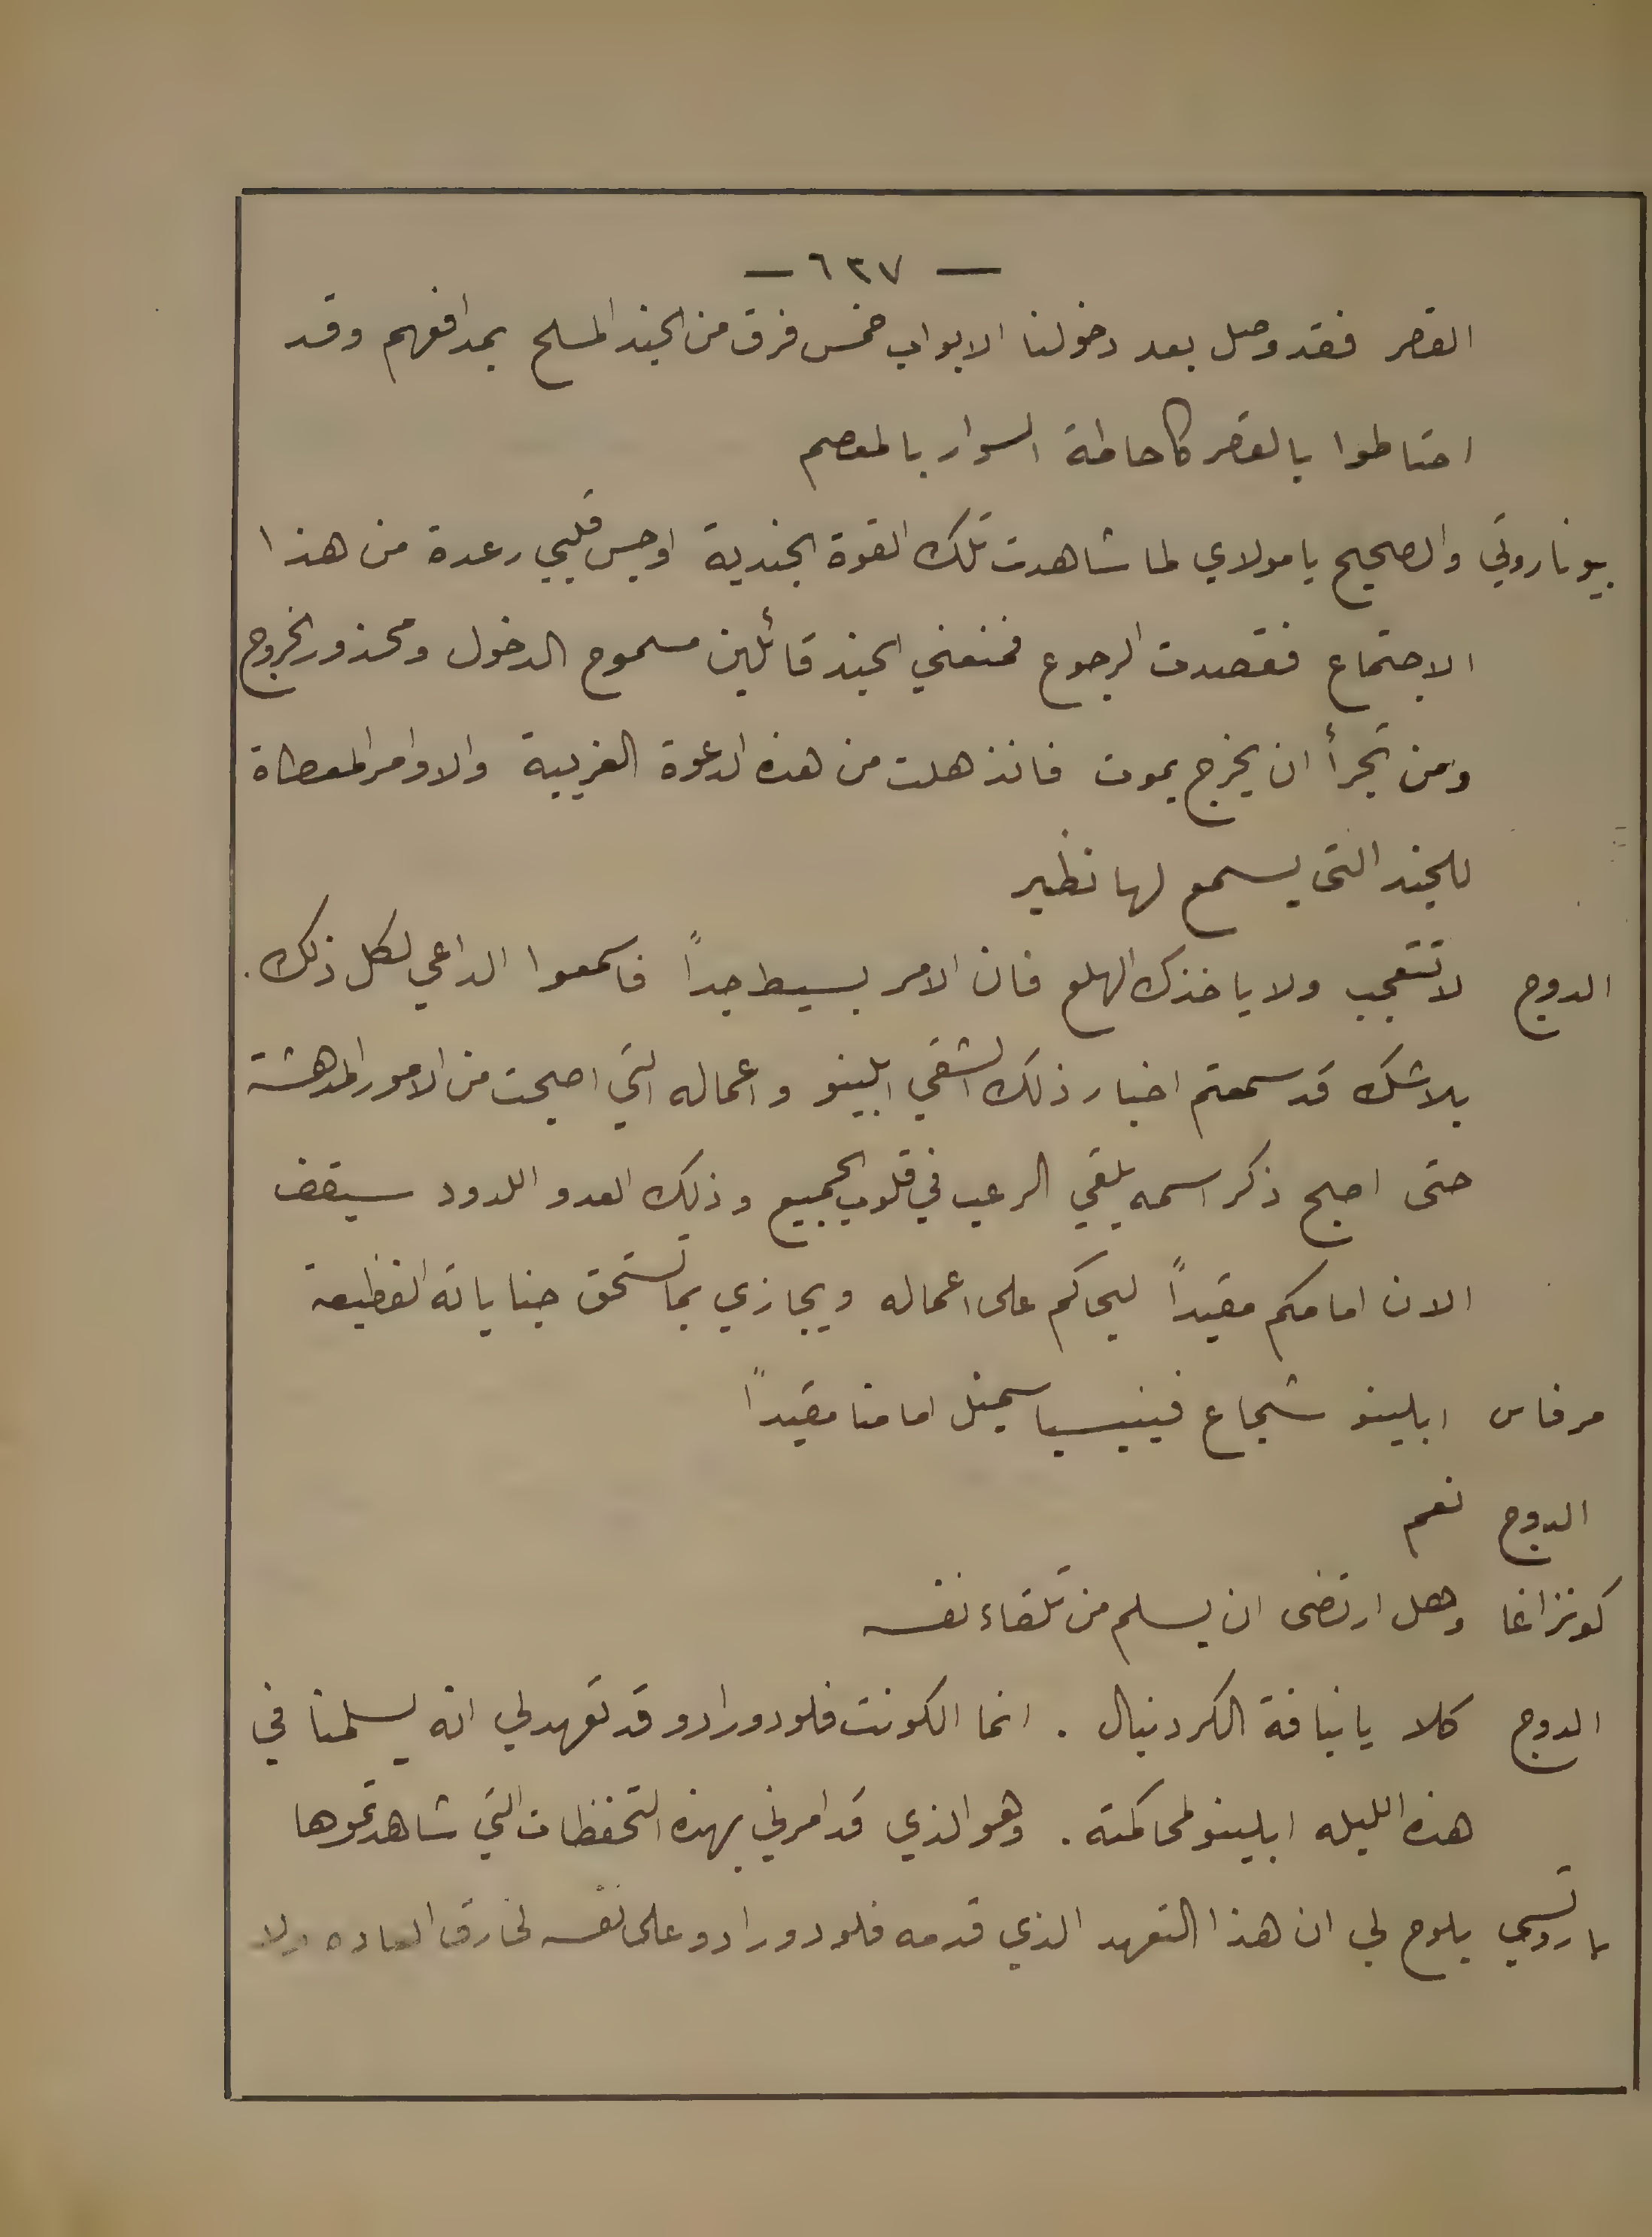 — ٦٣٧ —
القصر فقد وصل بعد دخولنا الابواب خمس فرق من الجند المسلح بمدافعهم وقد
احتاطوا بالقصر كاحاطة السوار بالمعصم
بوناروتي والصحيح يا مولاي لما شاهدت تلك القوة الجندية اوجس قلبي رعدة من هذا
الاجتماع فقصدت الرجوع فمنعني الجند قائلين مسموح الدخول ومحذور الخروج
ومن تجرأ ان يخرج يموت فانذهلت من هذه الدعوة الغريبة والاوامر المعطاة
للجند التي يسمع لها نظير
الدوج لا تتعجب ولا ياخذك الهلع فان الامر بسيط جداً فاسمعوا الداعي لكل ذلك .
بلاشك قد سمعتم اخبار ذلك الشقي ابلينو واعماله التي اصبحت من الامور المدهشة
حتى اصبح ذكر اسمه يلقي الرعب في قلوب الجميع وذلك العدو اللدود سيقف
الان امامكم مقيداً ليحاكم على اعماله ويجازي بما تستحق جناياته الفظيعة
مرفاس ابلينو شجاع فينيسيا سيمثل امامنا مقيداً
الدوج نعم
كونزاغا وهل ارتضى ان يسلم من تلقاء نفسه
الدوج كلا يا نيافة الكردينال . انما الكونت فلودورادو قد تعهد لي انه يسلمنا في
هذه الليله ابلينو لمحاكمته . وهو الذي قد امرني بهذه التحفظات التي شاهدتموها
باروتسي يلوح لي ان هذا التعهد الذي قدمه فلودورادو على نفسه لخارق العاده ولا